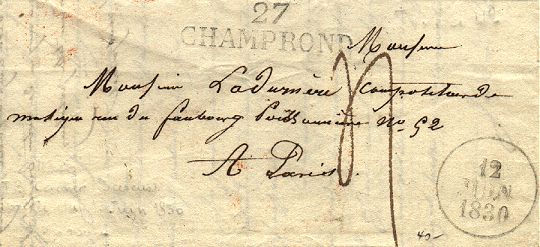 27
CHAMPROND
Monsieur
Monsieur Ladurnère Compositeur de
musique rue du faubourg Poissonnière No. 52
A Paris
12
JUIN
1830